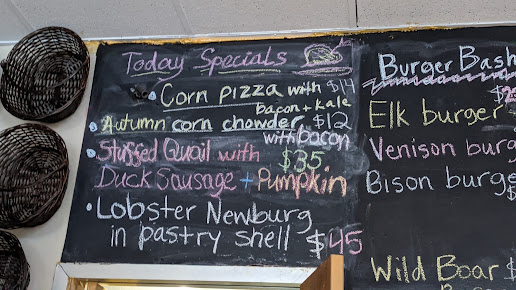 Today Specials
• Corn pizza with $14
bacon + kale
• Autumn corn chowder $12
with bacon
• Stuffed Quail with $35
Duck Sausage + Pumpkin
• Lobster Newburg
in pastry shell $45
Burger Bash
Elk burger $
Venison burg
Bison burge
Wild Boar $